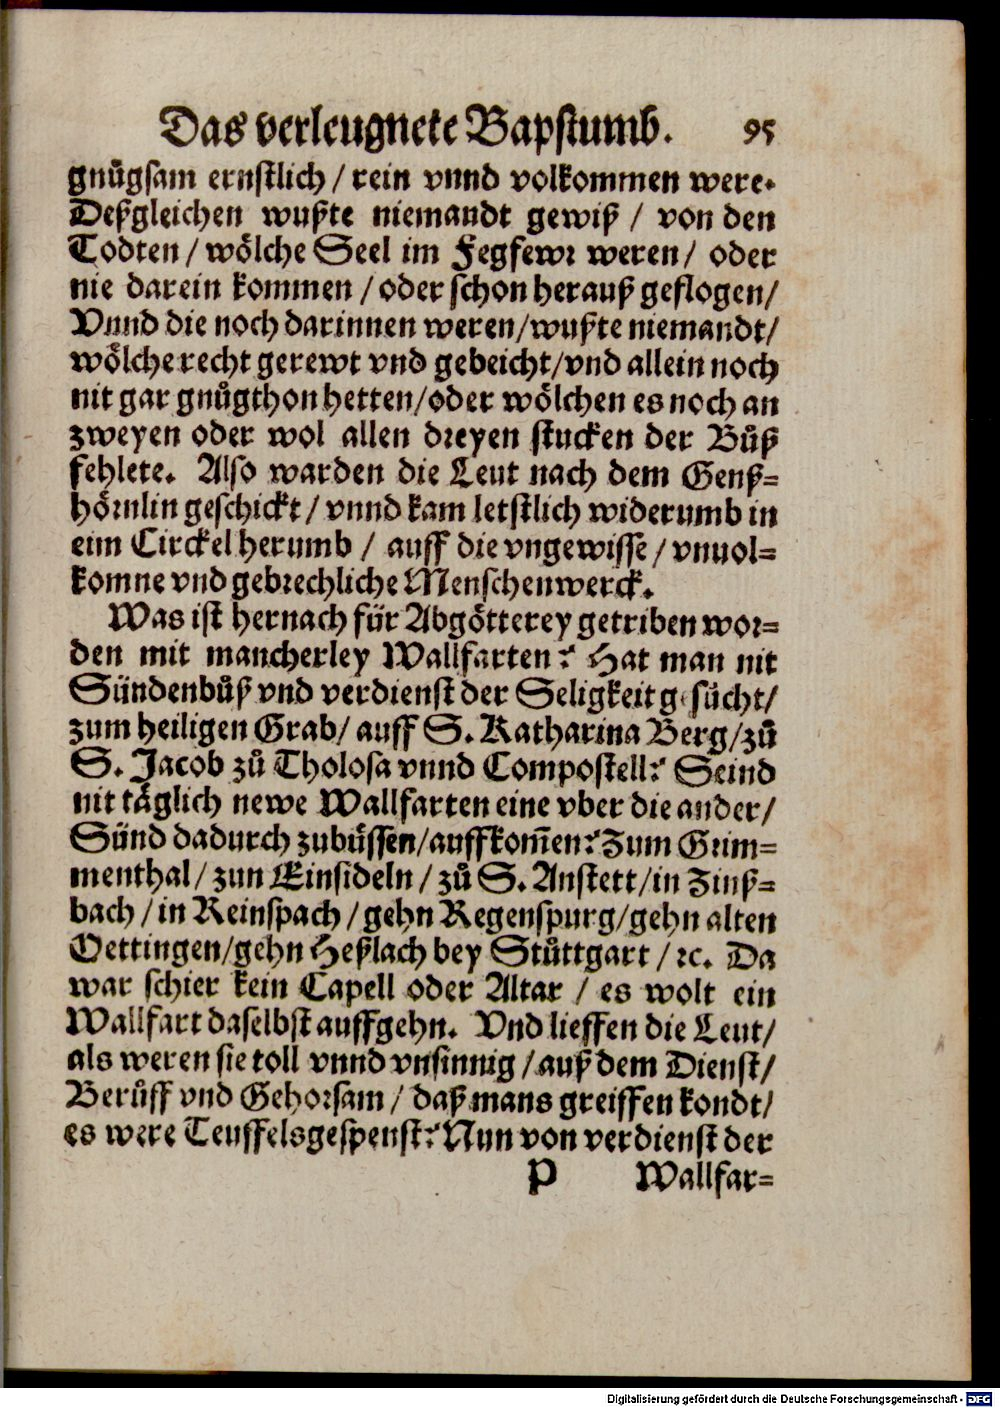 Das verleugnete Bapstumb. 95
gnůgsam ernstlich / rein vnnd volkommen were.
Deßgleichen wußte niemandt gewiß / von den
Todten / wölche Seel im Fegfewr weren / oder
nie darein kommen / oder schon herauß geflogen /
Vnnd die noch darinnen weren / wußte niemandt /
wölche recht gerewt vnd gebeicht / vnd allein noch
nit gar gnůgthon hetten / oder wölchen es noch an
zweyen oder wol allen dreyen stucken der Bůß
fehlete. Also warden die Leut nach dem Genß=
hörnlin geschickt / vnnd kam letstlich widerumb in
eim Circkel herumb / auff die vngewisse / vnuol=
komne vnd gebrechliche Menschenwerck.
Was ist hernach für Abgötterey getriben wor=
den mit mancherley Wallfarten? Hat man nit
Sündenbůß vnd verdienst der Seligkeit gesůcht /
zum heiligen Grab / auff S. Katharina Berg / zů
S. Jacob zů Tholosa vnnd Compostell? Seind
nit täglich newe Wallfarten eine vber die ander /
Sünd dadurch zubüssen / auffkom̄en? Zum Grim=
menthal / zun Einsideln / zů S. Anstett / in Zinß=
bach / in Reinspach / gehn Regenspurg / gehn alten
Oettingen / gehn Heßlach bey Stůttgart / ꝛc. Da
war schier kein Capell oder Altar / es wolt ein
Wallfart daselbst auffgehn. Vnd lieffen die Leut /
als weren sie toll vnnd vnsinnig / auß dem Dienst /
Berůff vnd Gehorsam / daß mans greiffen kondt /
es were Teuffelsgespenst? Nun von verdienst der
P Wallfar=
Digitalisierung gefördert durch die Deutsche Forschungsgemeinschaft - DFG